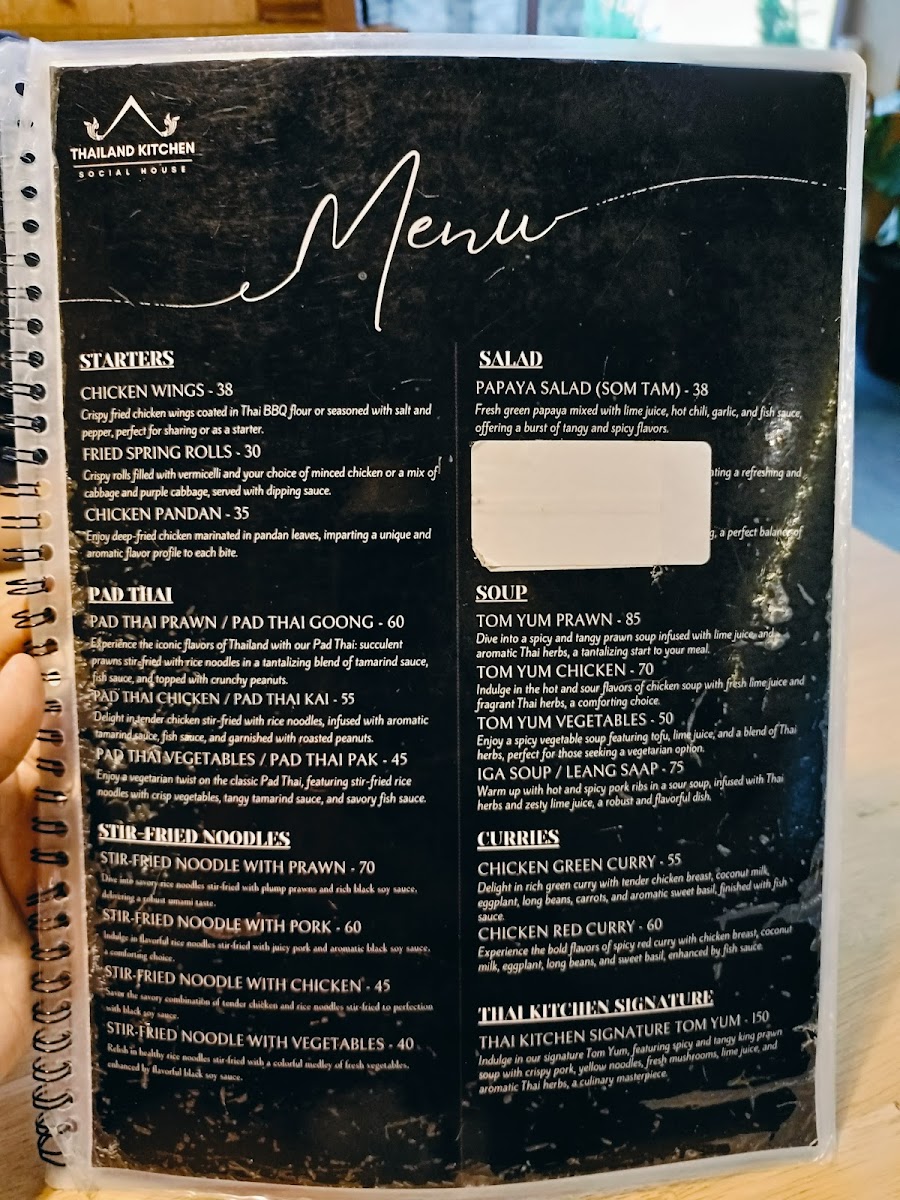 THAILAND KITCHEN
SOCIAL HOUSE
Menu
STARTERS
CHICKEN WINGS - 38
Crispy fried chicken wings coated in Thai BBQ flour or seasoned with salt and
pepper, perfect for sharing or as a starter.
FRIED SPRING ROLLS - 30
Crispy rolls filled with vermicelli and your choice of minced chicken or a mix of
cabbage and purple cabbage, served with dipping sauce.
CHICKEN PANDAN - 35
Enjoy deep-fried chicken marinated in pandan leaves, imparting a unique and
aromatic flavor profile to each bite.
PAD THAI
PAD THAI PRAWN / PAD THAI GOONG - 60
Experience the iconic flavors of Thailand with our Pad Thai: succulent
prawns stir-fried with rice noodles in a tantalizing blend of tamarind sauce,
fish sauce, and topped with crunchy peanuts.
PAD THAI CHICKEN / PAD THAI KAI - 55
Delight in tender chicken stir-fried with rice noodles, infused with aromatic
tamarind sauce, fish sauce, and garnished with roasted peanuts.
PAD THAI VEGETABLES / PAD THAI PAK - 45
Enjoy a vegetarian twist on the classic Pad Thai, featuring stir-fried rice
noodles with crisp vegetables, tangy tamarind sauce, and savory fish sauce.
STIR-FRIED NOODLES
STIR-FRIED NOODLE WITH PRAWN - 70
Dive into savory rice noodles stir-fried with plump prawns and rich black soy sauce,
delivering a robust umami taste.
STIR-FRIED NOODLE WITH PORK - 60
Indulge in flavorful rice noodles stir-fried with juicy pork and aromatic black soy sauce,
a comforting choice.
STIR-FRIED NOODLE WITH CHICKEN - 45
Savor the savory combination of tender chicken and rice noodles stir-fried to perfection
with black soy sauce.
STIR-FRIED NOODLE WITH VEGETABLES - 40
Relish in healthy rice noodles stir-fried with a colorful medley of fresh vegetables,
enhanced by flavorful black soy sauce.
SALAD
PAPAYA SALAD (SOM TAM) - 38
Fresh green papaya mixed with lime juice, hot chili, garlic, and fish sauce,
offering a burst of tangy and spicy flavors.
a refreshing and
a perfect balance of
SOUP
TOM YUM PRAWN - 85
Dive into a spicy and tangy prawn soup infused with lime juice, and
aromatic Thai herbs, a tantalizing start to your meal.
TOM YUM CHICKEN - 70
Indulge in the hot and sour flavors of chicken soup with fresh lime juice and
fragrant Thai herbs, a comforting choice.
TOM YUM VEGETABLES - 50
Enjoy a spicy vegetable soup featuring tofu, lime juice, and a blend of Thai
herbs, perfect for those seeking a vegetarian option.
IGA SOUP / LEANG SAAP - 75
Warm up with hot and spicy pork ribs in a sour soup, infused with Thai
herbs and zesty lime juice, a robust and flavorful dish.
CURRIES
CHICKEN GREEN CURRY - 55
Delight in rich green curry with tender chicken breast, coconut milk,
eggplant, long beans, carrots, and aromatic sweet basil, finished with fish
sauce.
CHICKEN RED CURRY - 60
Experience the bold flavors of spicy red curry with chicken breast, coconut
milk, eggplant, long beans, and sweet basil, enhanced by fish sauce.
THAI KITCHEN SIGNATURE
THAI KITCHEN SIGNATURE TOM YUM - 150
Indulge in our signature Tom Yum, featuring spicy and tangy king prawn
soup with crispy pork, yellow noodles, fresh mushrooms, lime juice, and
aromatic Thai herbs, a culinary masterpiece.